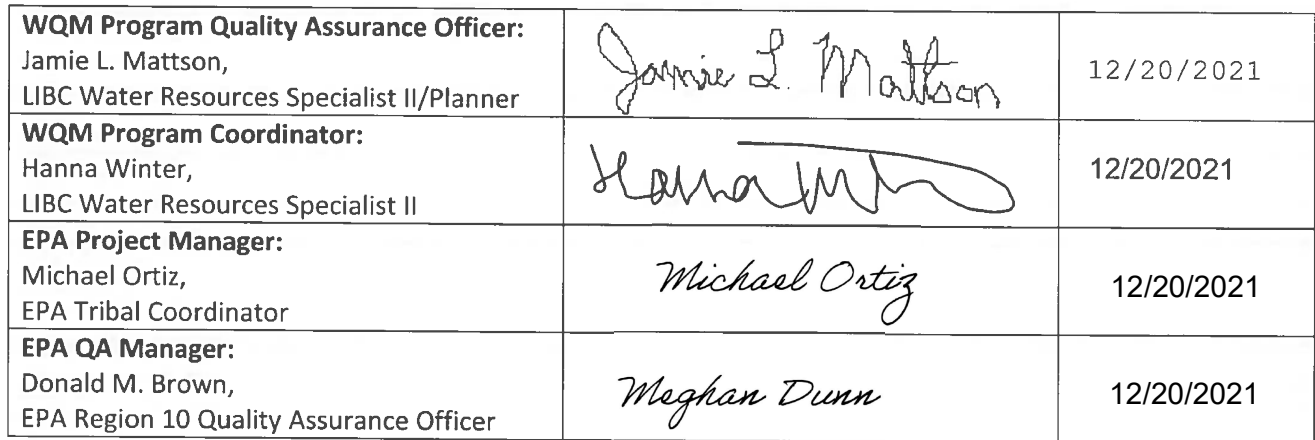 WQM Program Quality Assurance Officer:
Jamie L. Mattson,
LIBC Water Resources Specialist II/Planner
Jamie L. Mattson
12/20/2021
WQM Program Coordinator:
Hanna Winter,
LIBC Water Resources Specialist II
Hanna
12/20/2021
EPA Project Manager:
Michael Ortiz,
EPA Tribal Coordinator
Michael Ortiz
12/20/2021
EPA QA Manager:
Donald M. Brown,
EPA Region 10 Quality Assurance Officer
Meghan Dunn
12/20/2021